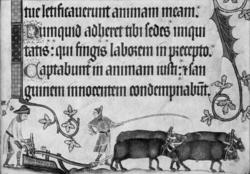 tue letificauerunt animam meam.
Nunquid adheret tibi sedes iniqui
tatis: qui fingis laborem in precepto.
Captabunt in animam iusti: & san
guinem innocentem condempnabūt.